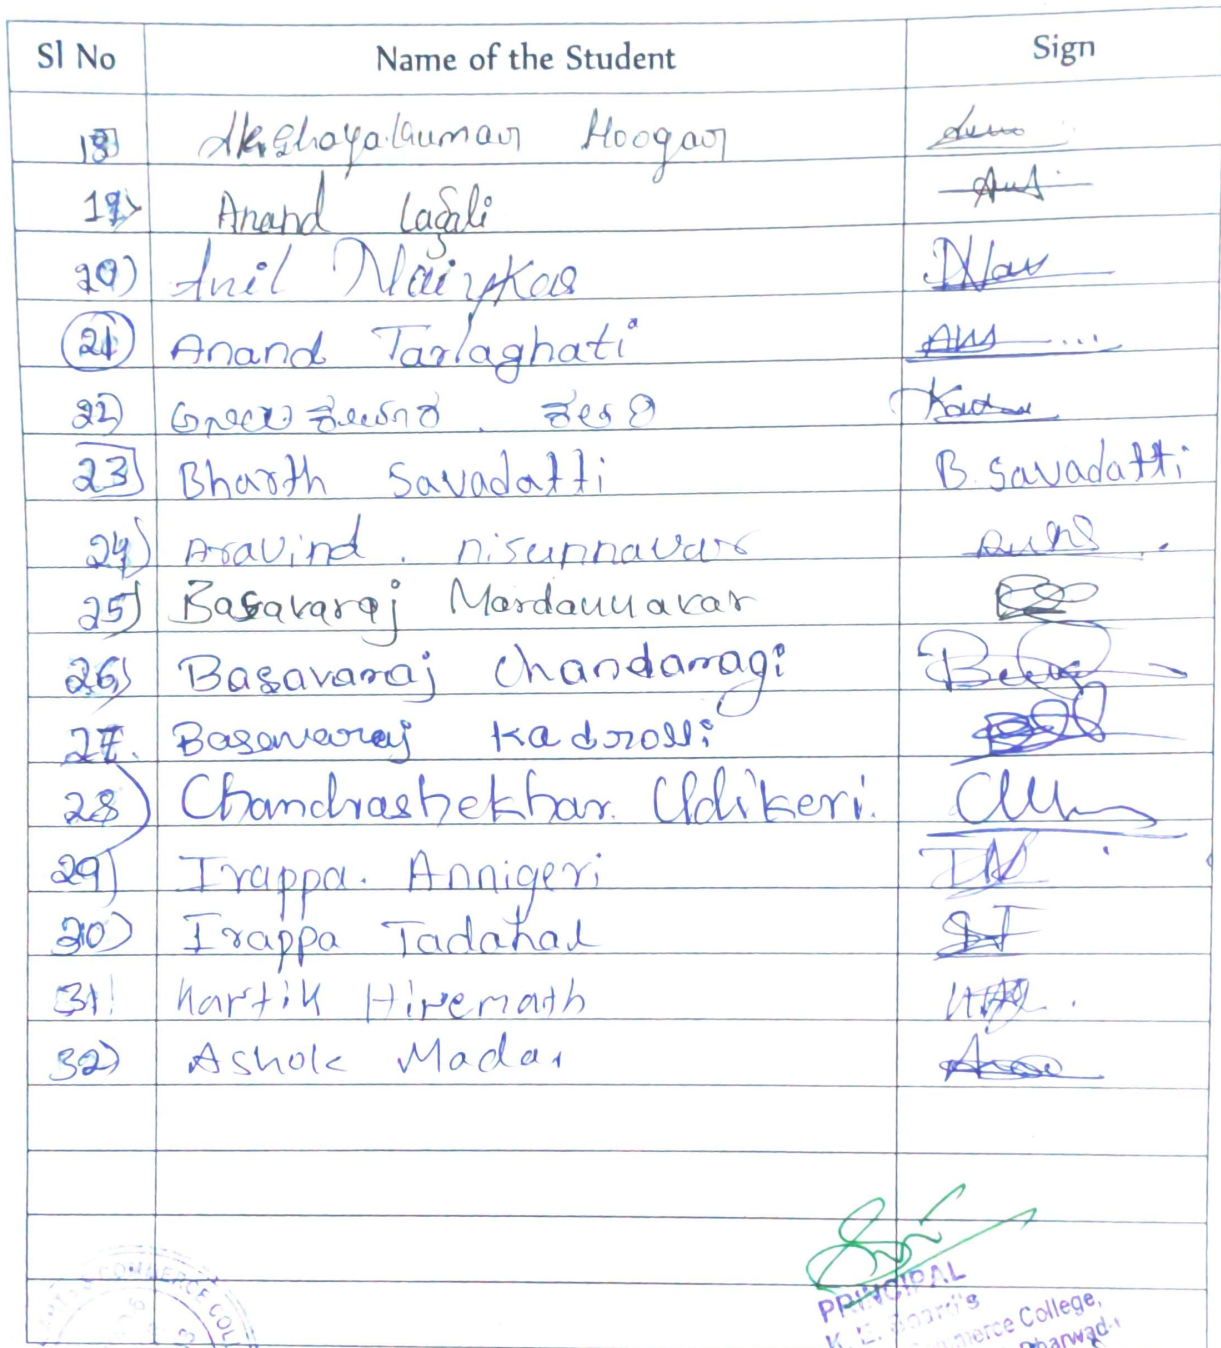 Sl No Name of the Student Sign
18) Akshayakumar Hoogar
19) Anand Lagali Ant
20) Anil Naiykar Nav
21) Anand Tarlaghati Ans ...
22)
23) Bharth Savadatti B. Savadatti
24) Aravind . nisunnavar
25) Basavaraj Mardannavar
26) Basavaraj Chandaragi
27. Basavaraj Kadrolli
28) Chandrashekhar. Udikeri.
29) Irappa. Annigeri IA
30) Irappa Tadahal
31 Kartik Hiremath
32) Ashok Madar
COMMERCE COL
PRINCIPAL
K. E. Board's
Commerce College,
Dharwad-1